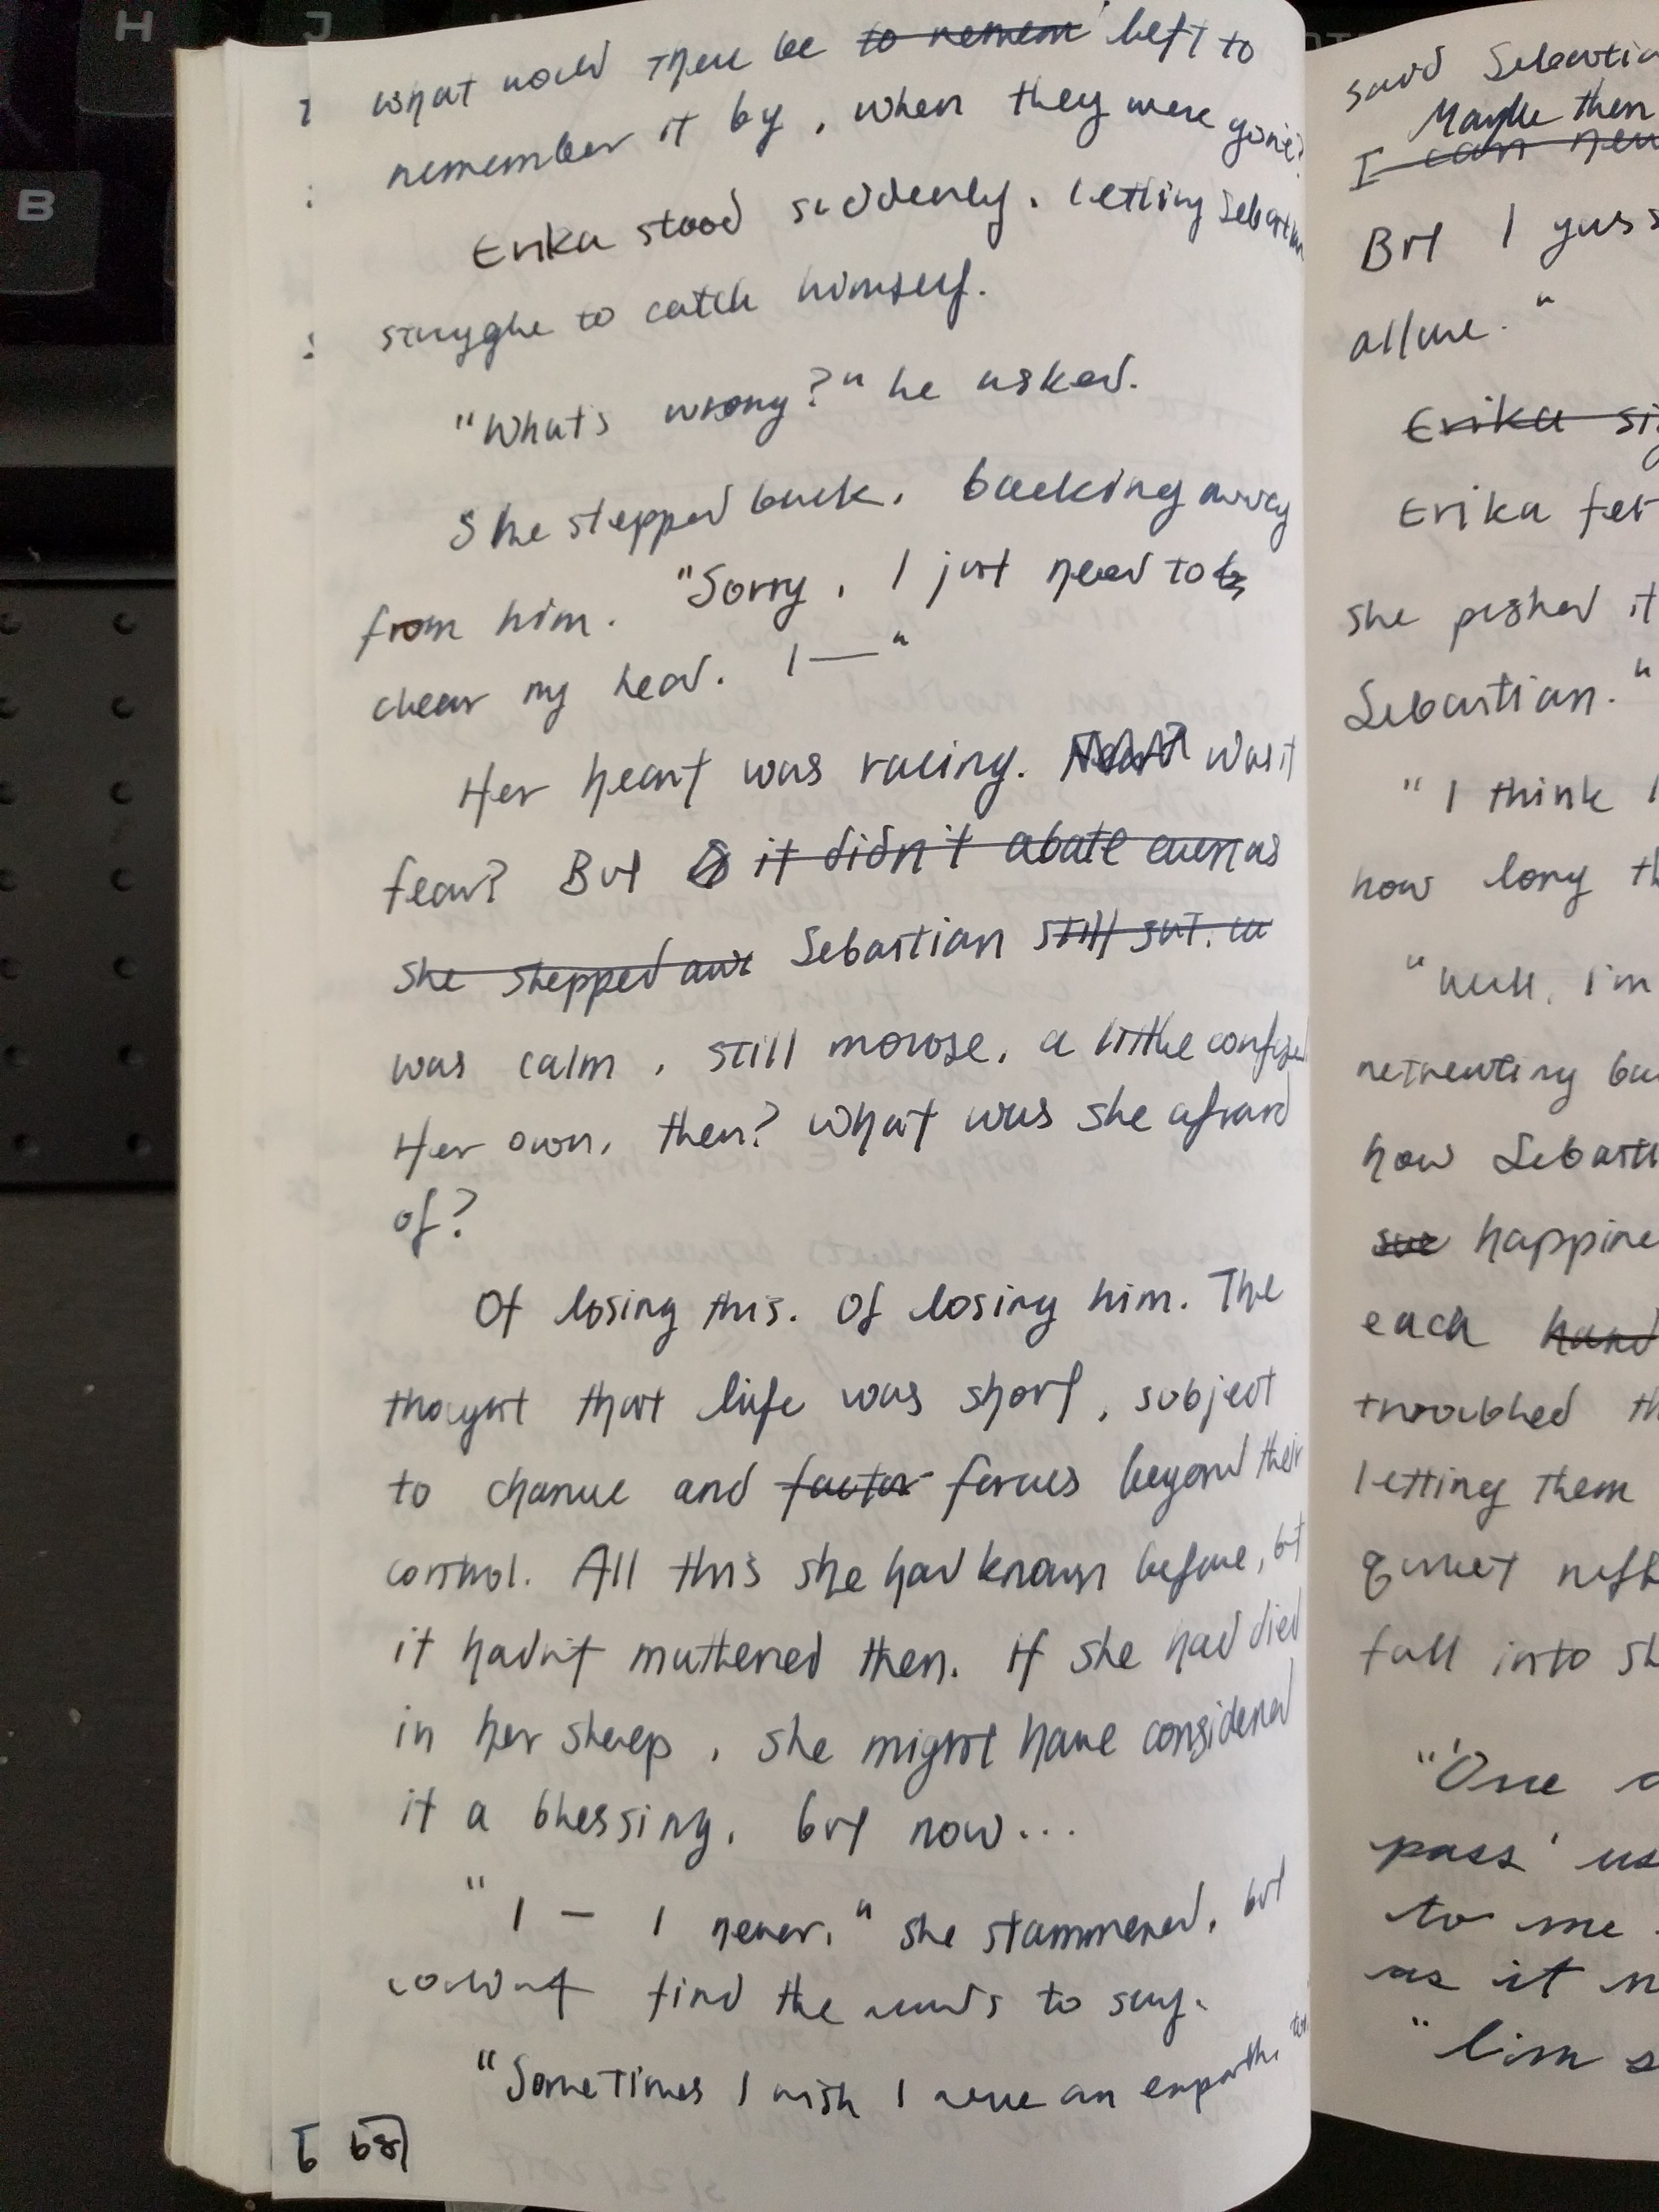 H
J
B
what would there be to remem left to
remember it by, when they were gone?
Erika stood suddenly, letting Sebastian
struggle to catch himself.
"What's wrong?" he asked.
She stepped back, backing away
from him. "Sorry, I just need to
clear my head. I—"
Her heart was racing. Was it
fear? But it didn't abate even as
she stepped awa Sebastian still sat, a
was calm, still morose, a little confused
Her own, then? What was she afraid
of?
Of losing this. Of losing him. The
thought that life was short, subject
to chance and factor forces beyond their
control. All this she had known before, but
it hadn't mattered then. If she had died
in her sleep, she might have considered
it a blessing, but now...
"I – I never," she stammered, but
couldn't find the words to say.
"Sometimes I wish I were an empath, too
68
said Sebastia
Maybe then
I can nev
But I guess
allure."
Erika sig
Erika fel
she pushed it
Sebastian."
"I think I
how long th
"Well, I'm
retreating ba
how Sebasti
happine
each hand
troubled th
letting them
quiet
fall into sh
"One
pass' us
to me
as it n
"I'm s